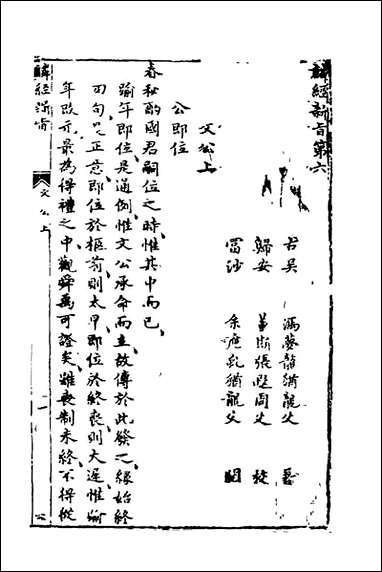 麟經新旨第六
古吳 馮夢龍猶龍父
歸安 張 父 校
長沙 余 龍父 閱
文公上
公即位
春秋酌國君嗣位之時惟其中而已
踰年即位是通例惟文公承命而立故傳於此發之緣始終
四句是正意即位於柩前則太早即位於終喪則太遲惟踰
年改元最為得禮之中觀舜禹可證矣雖喪制未終不得從
麟經新旨
文公上
一